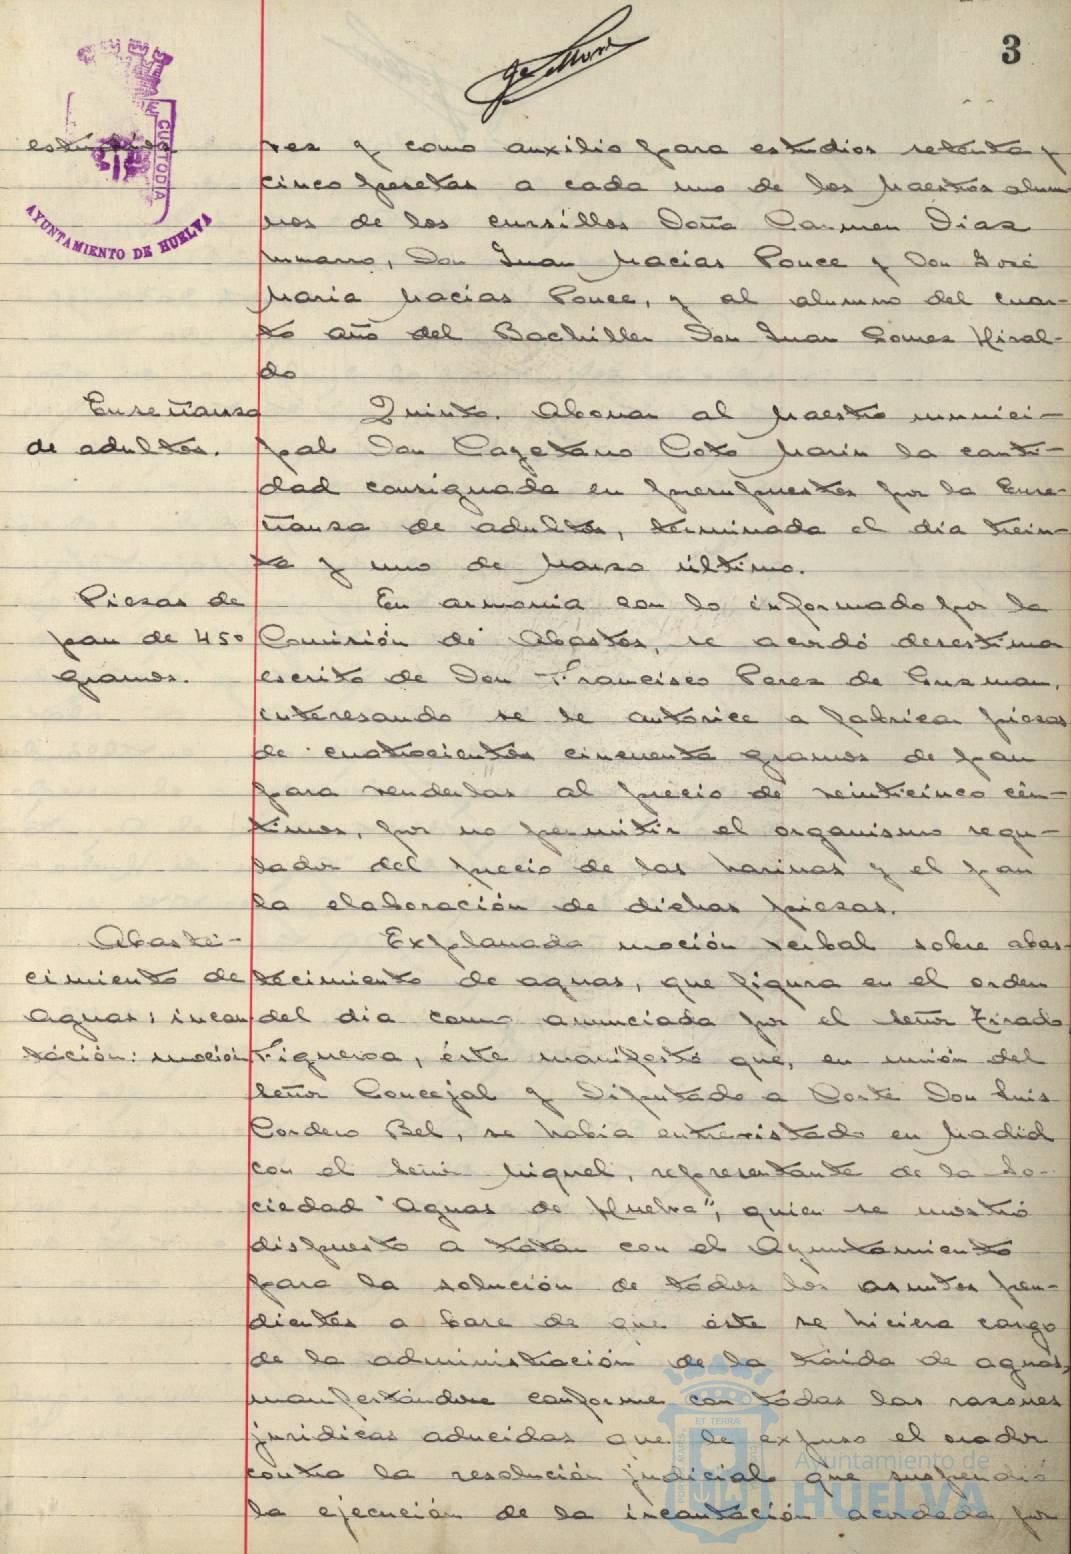 3
CUSTODIA
AYUNTAMIENTO DE HUELVA
estudios
res y como auxilio para estudios setenta y
cinco pesetas a cada uno de los Maestros alum
nos de los cursillos Doña Carmen Diaz
, Don Juan Macias Ponce y Don José
Maria Macias Ponce, y al alumno del cuar-
to año del Bachiller Don Juan Gomez Hiral-
do
Enseñanza
de adultos.
Quinto. Abonar al Maestro munici-
pal Don Cayetano Coto Marin la canti-
dad consignada en presupuestos por la Ense-
ñanza de adultos, terminada el dia trein-
ta y uno de Marzo último.
Piezas de
pan de 450
gramos.
En armonia con lo informado por la
Comisión de Abastos, se acordó desestimar
escrito de Don Francisco Perez de Guzman,
interesando se le autorice a fabricar piezas
de cuatrocientos cincuenta gramos de pan
para venderlas al precio de veinticinco cén-
timos, por no permitir el organismo regu-
lador del precio de las harinas y el pan
la elaboración de dichas piezas.
Abaste-
cimiento de
Aguas: incau
tación: moción
Explanada moción verbal sobre abas-
tecimiento de aguas, que figura en el orden
del dia como anunciada por el Señor Tirado
Figueroa, éste manifestó que, en unión del
Señor Concejal y Diputado a Corte Don Luis
Cordero Bel, se habia entrevistado en Madrid
con el Señor Miguel, representante de la So-
ciedad "Aguas de Huelva", quien se mostró
dispuesto a tratar con el Ayuntamiento
para la solución de todos los asuntos pen-
dientes a base de que éste se hiciera cargo
de la administración de la traida de aguas,
manifestándose conforme con todas las razones
juridicas aducidas que le expuso el orador
contra la resolución judicial que suspendió
la ejecución de la incautación acordada por
Ayuntamiento de
HUELVA